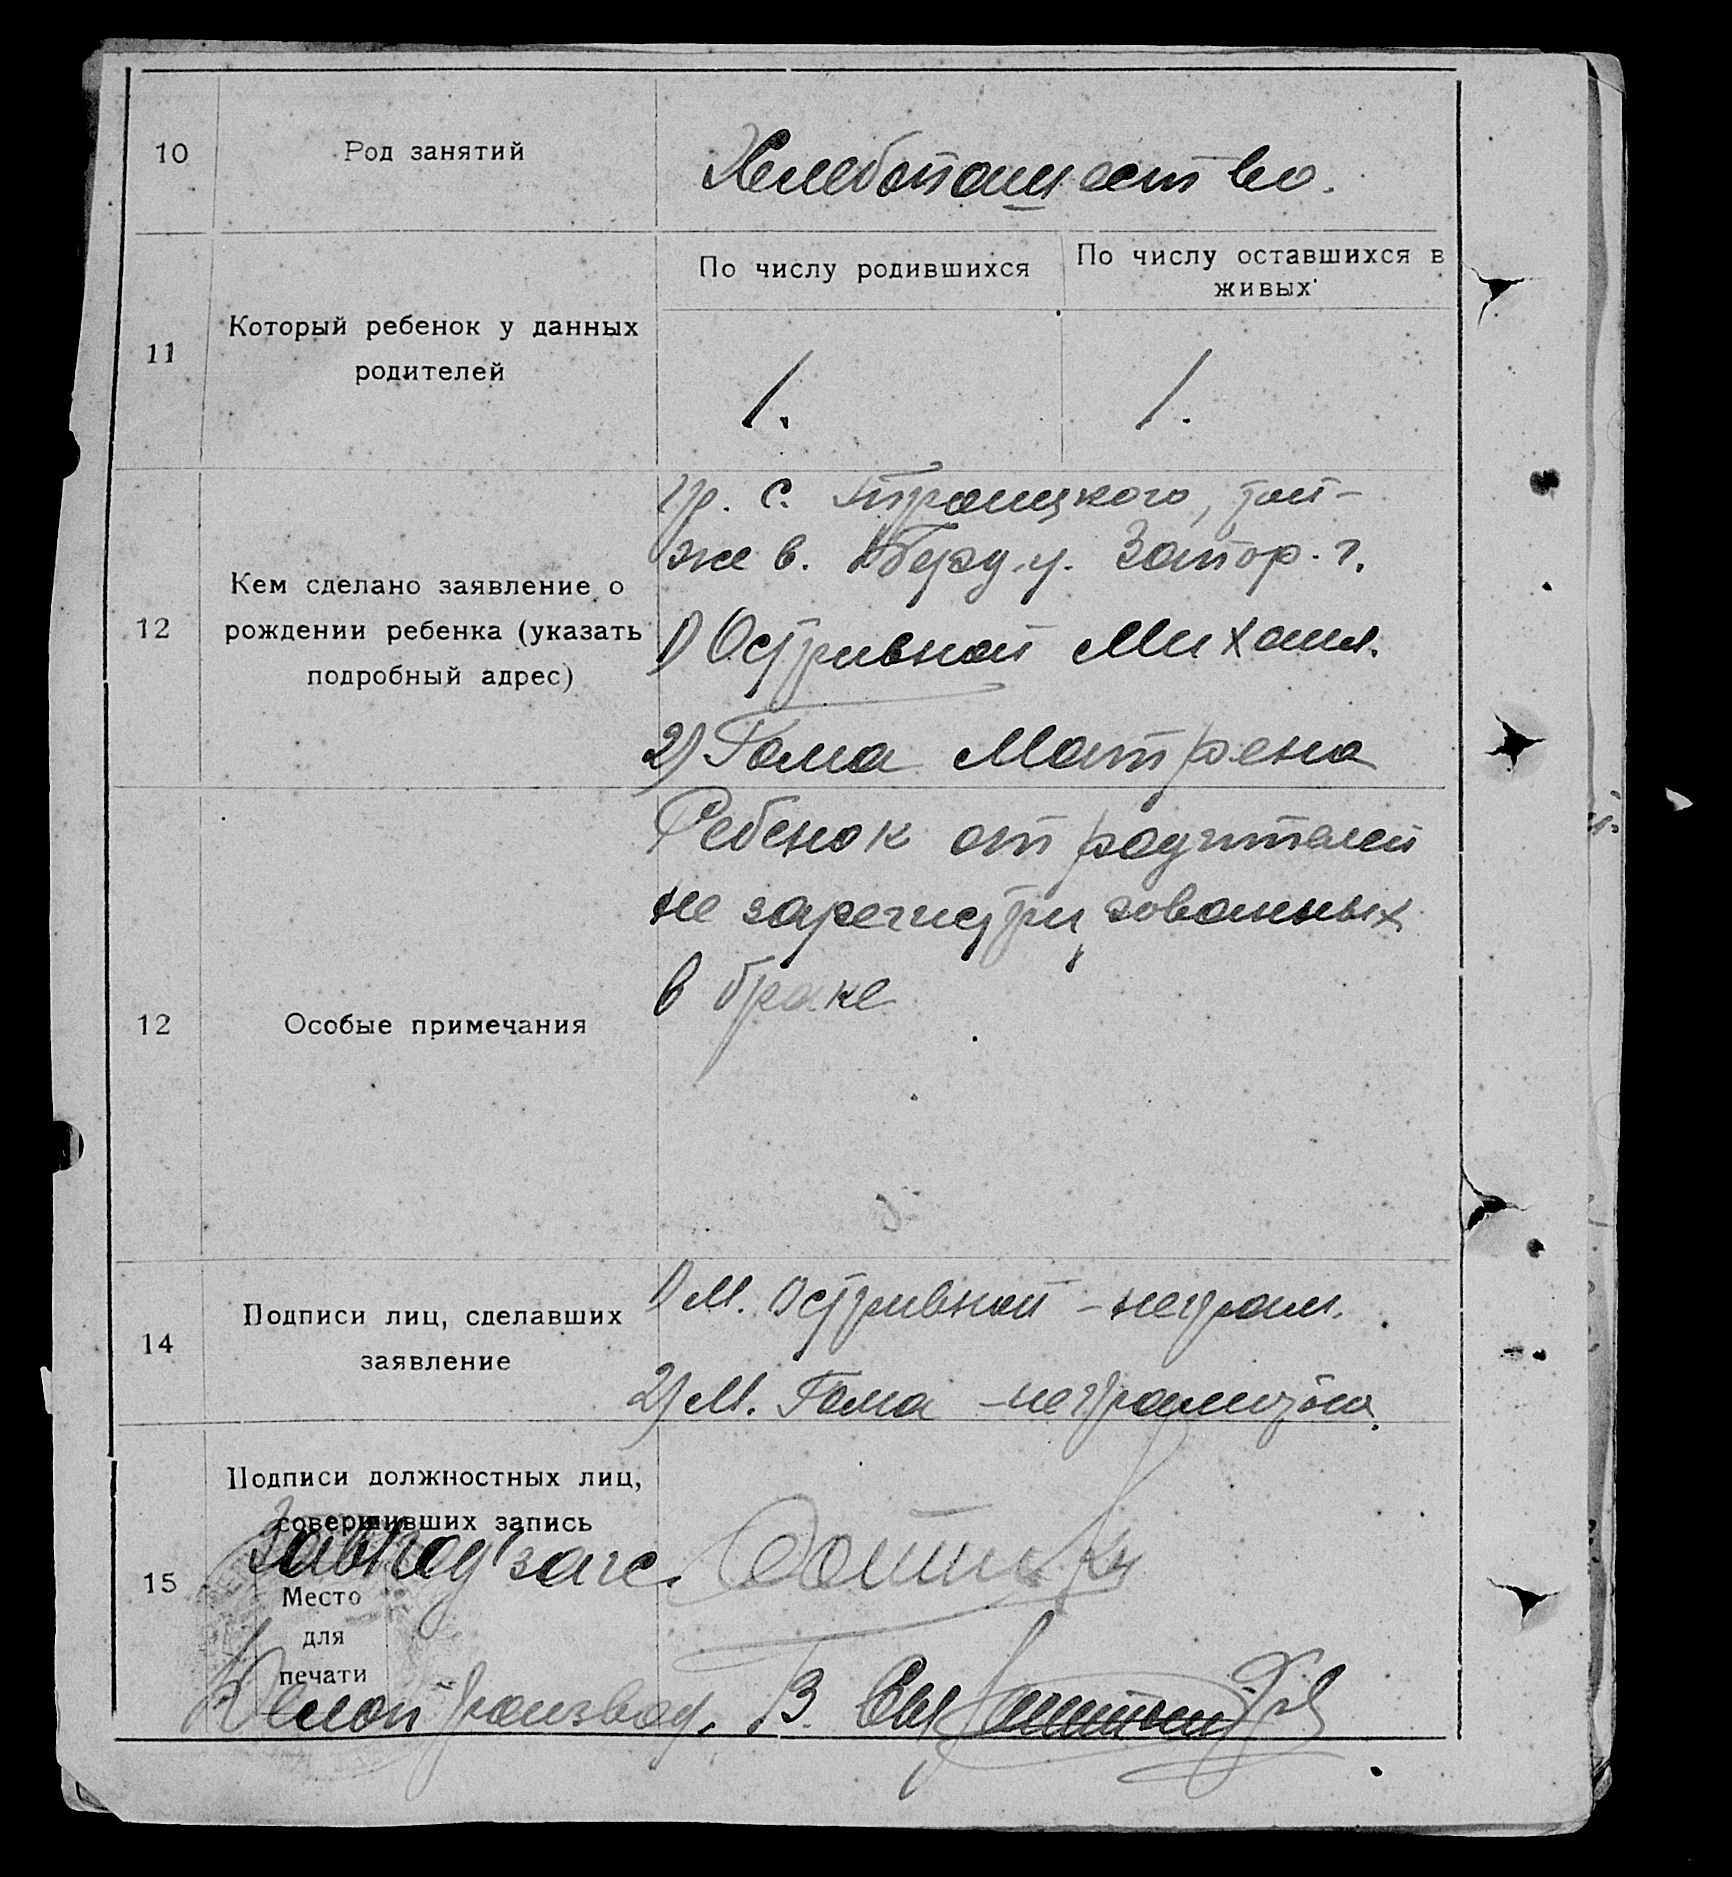 10 Род занятий Хлебопашество.
11 Который ребенок у данных
родителей
По числу родившихся
По числу оставшихся в
живых
1. 1.
12 Кем сделано заявление о
рождении ребенка (указать
подробный адрес)
гр. с. Троицкого, той-
же в. Берд. у. Запор. г.
1) Остривной Михаил.
2) Гама Матрена
12 Особые примечания
Ребенок от родителей
не зарегистризованных
в браке
14 Подписи лиц, сделавших
заявление
1) М. Остривной - неграм.
2) М. Гама - неграмотна.
15 Подписи должностных лиц,
совершивших запись
Завпод загс.
Место
для
печати
Делопроизвод. В.